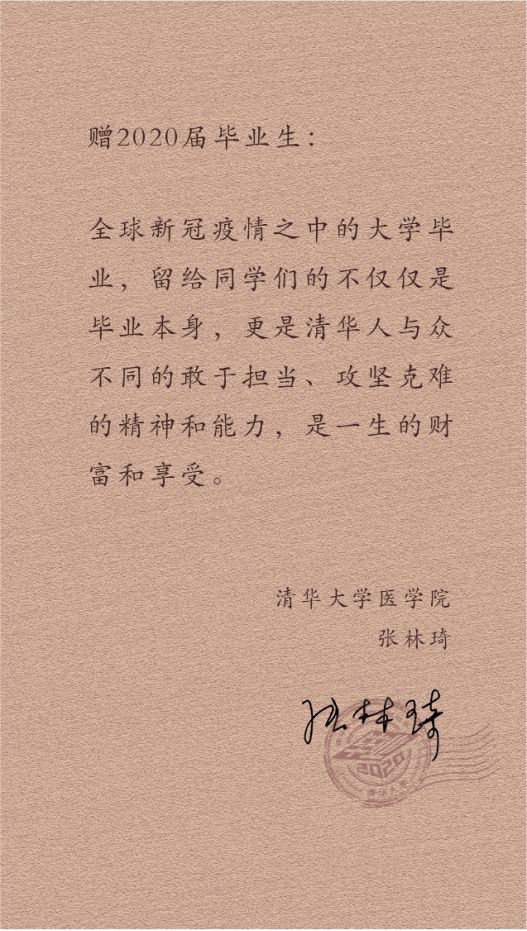 赠2020届毕业生：
全球新冠疫情之中的大学毕
业，留给同学们的不仅仅是
毕业本身，更是清华人与众
不同的敢于担当、攻坚克难
的精神和能力，是一生的财
富和享受。
清华大学医学院
张林琦
张林琦
2020